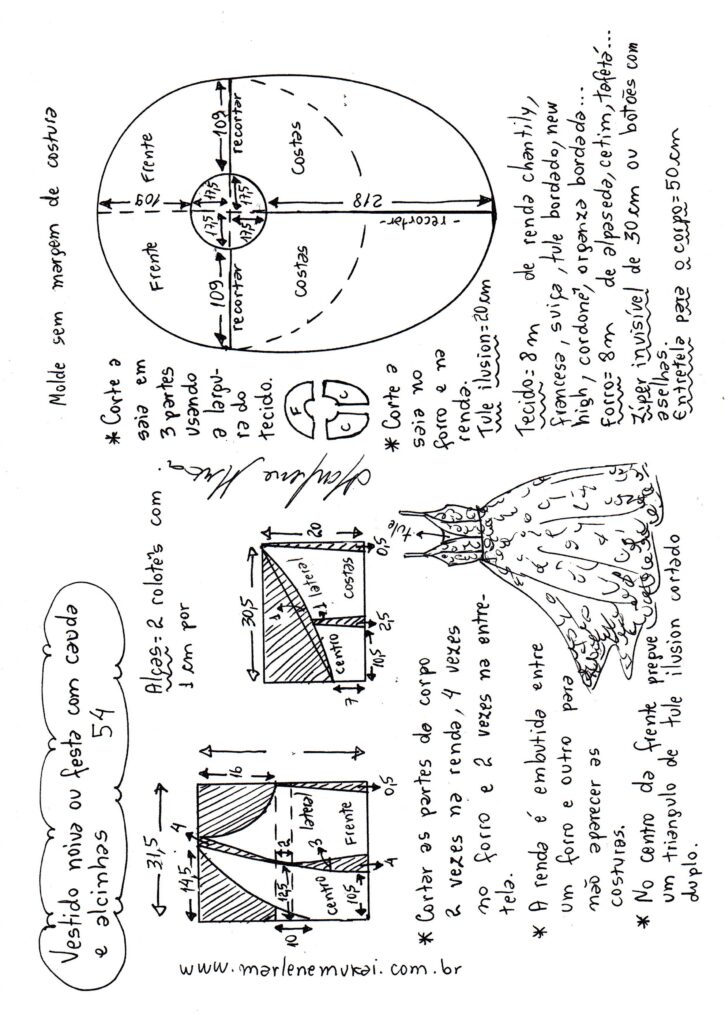 Vestido noiva ou festa com cauda
e alcinhas 54
www.marlenemukai.com.br
31,5
14,5
4
16
12,5
2
10
3
centro
lateral
Frente
10,5
4
0,5
Alças = 2 rolotês com
1 cm por
30,5
20
1
lateral
centro
costas
7
10,5
2,5
0,5
* Cortar as partes do corpo
2 vezes na renda, 4 vezes
no forro e 2 vezes na entre-
tela.
* A renda é embutida entre
um forro e outro para
não aparecer as
costuras.
* No centro da frente pregue
um triangulo de tule ilusion cortado
duplo.
tule
Marlene Mukai
Molde sem margem de costura
* Corte a
saia em
3 partes
usando
a largu-
ra do
tecido.
F
C
C
* Corte a
saia no
forro e na
renda.
Frente
Frente
109
109
109
17,5
17,5
17,5
17,5
recortar
recortar
Costas
Costas
218
-recortar-
Tule ilusion=20cm
Tecido= 8m de renda chantily,
francesa, suiça, tule bordado, new
high, cordonê, organza bordada...
Forro= 8m de alpaseda, cetim, tafetá...
Zíper invisível de 30cm ou botões com
aselhas.
Entretela para o corpo=50cm